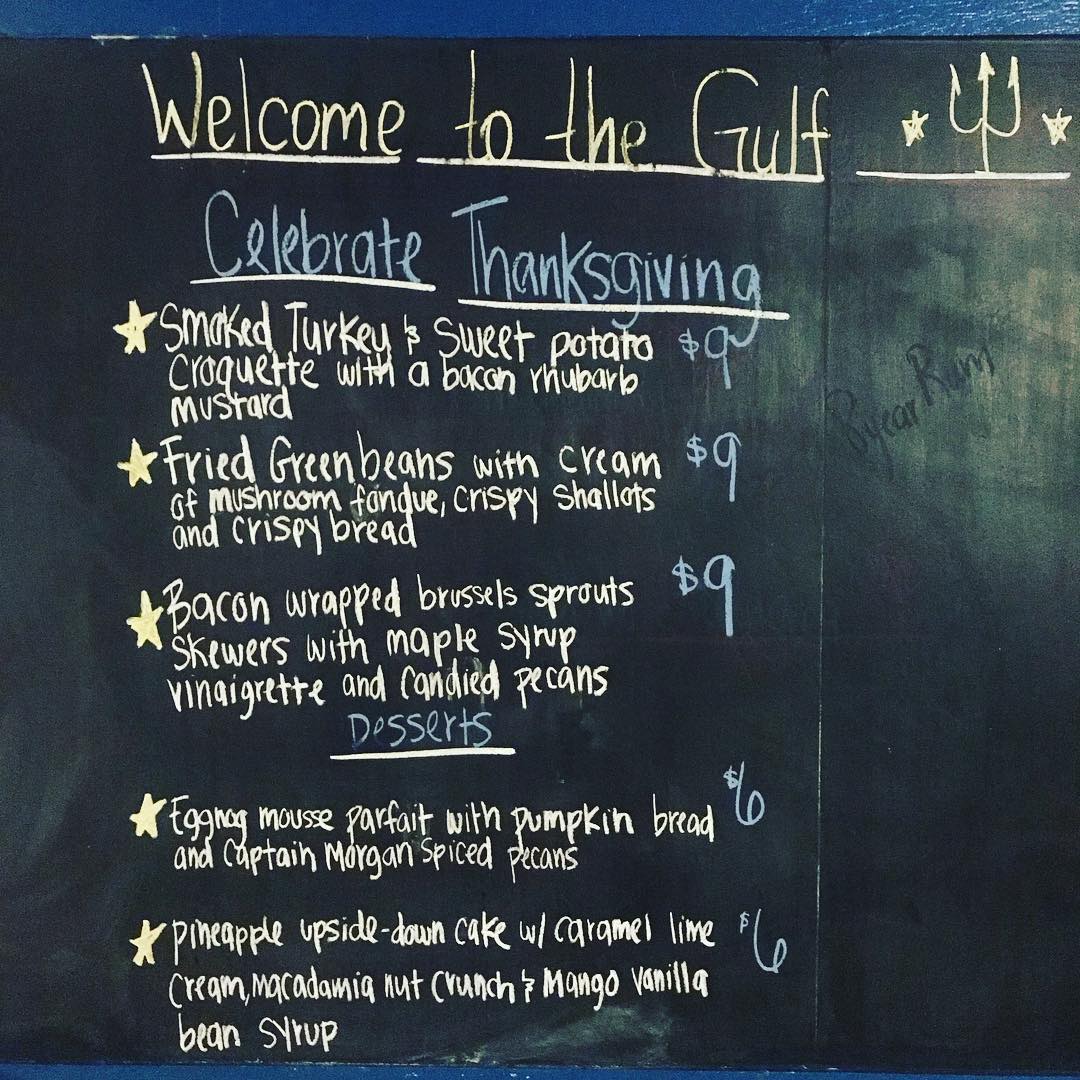 Welcome to the Gulf
Celebrate Thanksgiving
Smoked Turkey & Sweet potato $9
Croquette with a bacon rhubarb
mustard
Fried Greenbeans with cream $9
of mushroom fondue, crispy shallots
and crispy bread
Bacon wrapped brussels sprouts $9
Skewers with maple syrup
vinaigrette and candied pecans
Desserts
Eggnog mousse parfait with pumpkin bread $6
and Captain Morgan Spiced pecans
pineapple upside-down cake w/ caramel lime $6
cream, macadamia nut crunch & Mango vanilla
bean syrup
8 year Rum